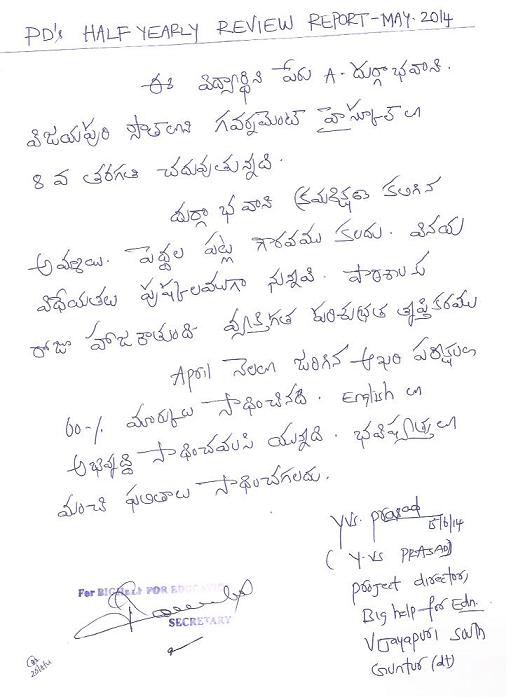 PD's HALF YEARLY REVIEW REPORT-MAY.2014
ఈ విద్యార్థిని పేరు A. దుర్గా భవాని.
విజయపురి సౌత్‌లోని గవర్నమెంట్ హైస్కూల్ లో
8 వ తరగతి చదువుతున్నది.
దుర్గా భవాని క్రమశిక్షణ కలిగిన
అమ్మాయి. పెద్దల పట్ల గౌరవము కలదు. వినయ
విధేయతలు పుష్కలముగా నున్నవి. పాఠశాలకు
రోజూ హాజరౌతుంది. వ్యక్తిగత పరిశుభ్రత తృప్తికరము
April నెలలో జరిగిన ఆఖరి పరీక్షలలో
60-% మార్కులు సాధించినది. English లో
అభివృద్ధి సాధించవలసి యున్నది. భవిష్యత్తులో
మంచి ఫలితాలు సాధించగలదు.
yvs. prasad
15/6/14
(Y.VS PRASAD)
project director,
Big help for Edn.
Vijayapuri South
Guntur (dt)
For BIG HELP FOR EDUCATION
SECRETARY